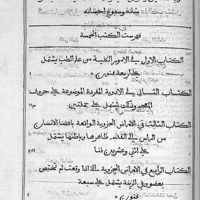 شانه وسبوغ احسانه
فهرست الكتب الخمسة
الكتاب الاول في الامور الكلية من علم الطب يشتمل
على اربعة فنون
الكتاب الثاني في الادوية المفردة الموضوعة على حروف
المعجم وذلك يشتمل على جملتين
الكتاب الثالث في الامراض الجزوية الواقعة باعضاء الانسان
من الراس الى القدم ظاهرها وباطنها يشتمل
على اثني وعشرين فنا
الكتاب الرابع في الامراض الجزوية التي اذا وقعت لم تختص
بعضو وفي الزينة يشتمل على سبعة
فنون